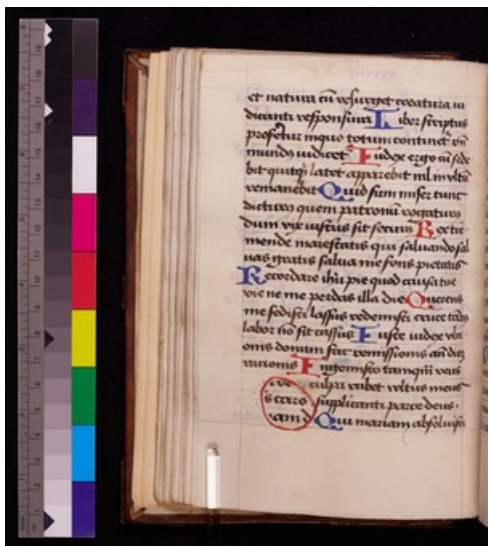 et natura cū resurget creatura iu
dicanti responsura Liber scriptus
profetur inquo totum continet vn̄
mundꝰ iudicet Iudex ergo cū sede
bit quitqͥ latet apparebit nil inultū
remanebit Quid sum miser tunc
dicturus quem patronū rogaturus
dum vix iustus sit securꝰ Rex tre
mende maiestatis qui saluandos sal
uas gratis salua me fons pietatis
Recordare ihū pie quod causa tue
vie ne me perdas illa die Querens
me sedisti lassus redemisti crucē
labor nō sit cassus Iuste iudex vlti
onis donum fac remissionis an̄ diē
racionis Ingemisco tamqm̄ reus
culpa rubet vultus meus
s caro supplicanti parce deus.
iam d Qui mariam absoluisti